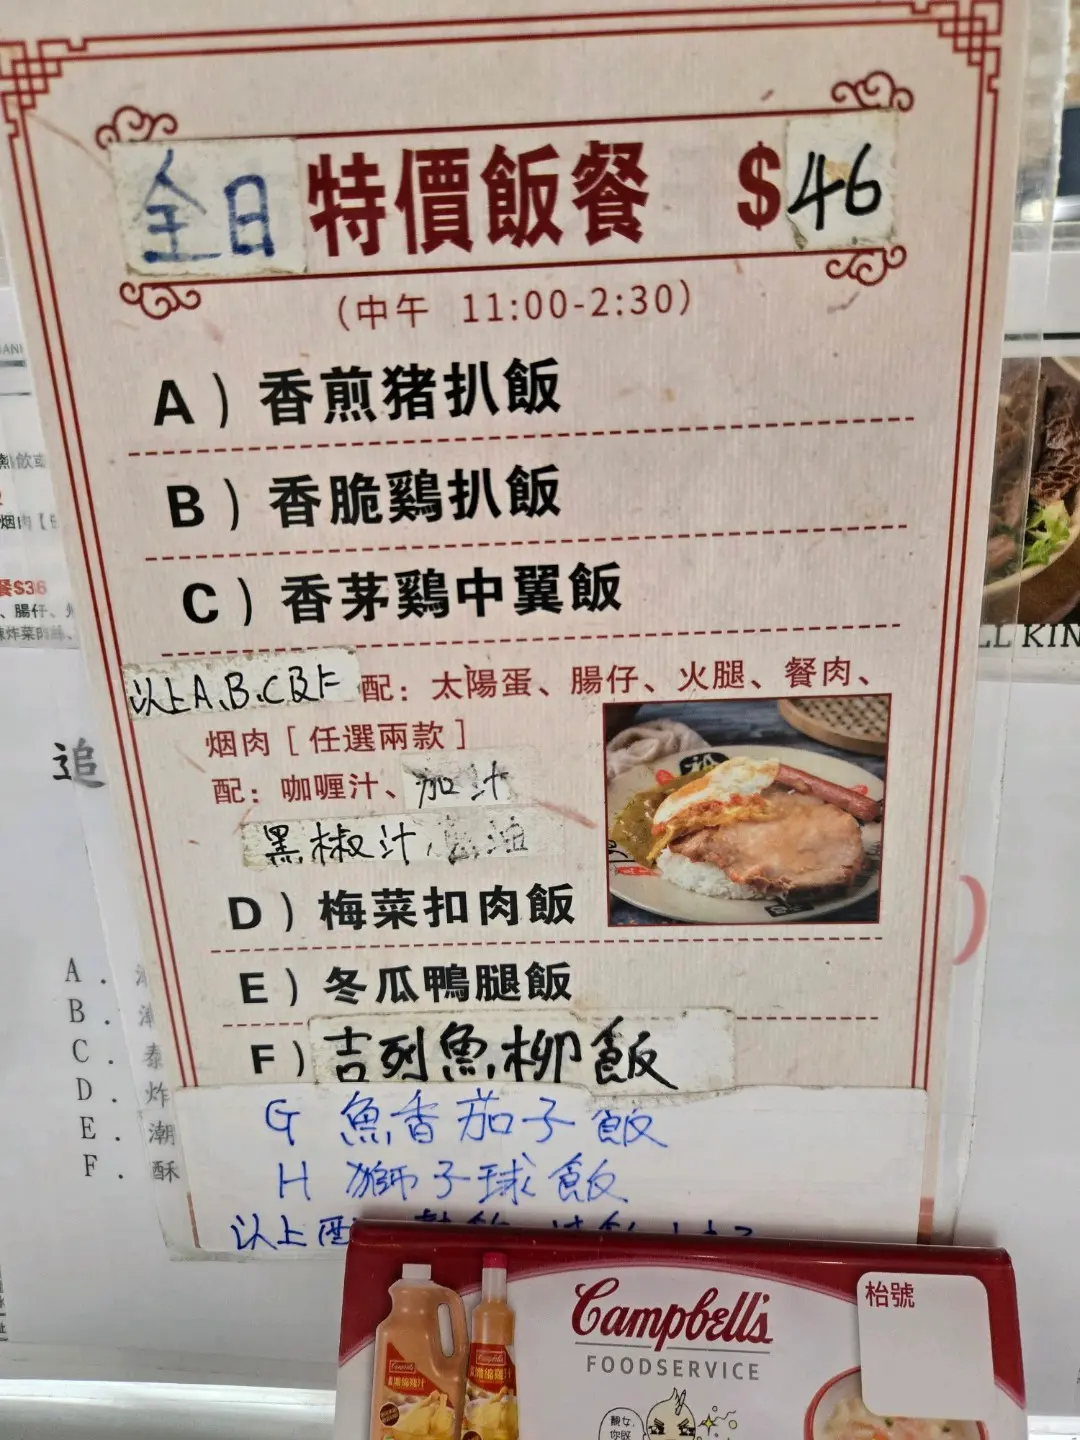 全日 特價飯餐 $46
（中午 11:00-2:30）
A）香煎猪扒飯
B）香脆鷄扒飯
C）香茅鷄中翼飯
以上A、B、C及F 配：太陽蛋、腸仔、火腿、餐肉、
烟肉［任選兩款］
配：咖喱汁、茄汁
黑椒汁，
D）梅菜扣肉飯
E）冬瓜鴨腿飯
F）吉列魚柳飯
G 魚香茄子飯
H 獅子球飯
以上配
熱飲或
烟肉【
餐$36
、腸仔、
炸菜肉絲、
追
A.
B.
C. 泰
D. 炸
E. 潮
F. 酥
LL KIN
Campbell's
FOODSERVICE
枱號
靚女,
你既